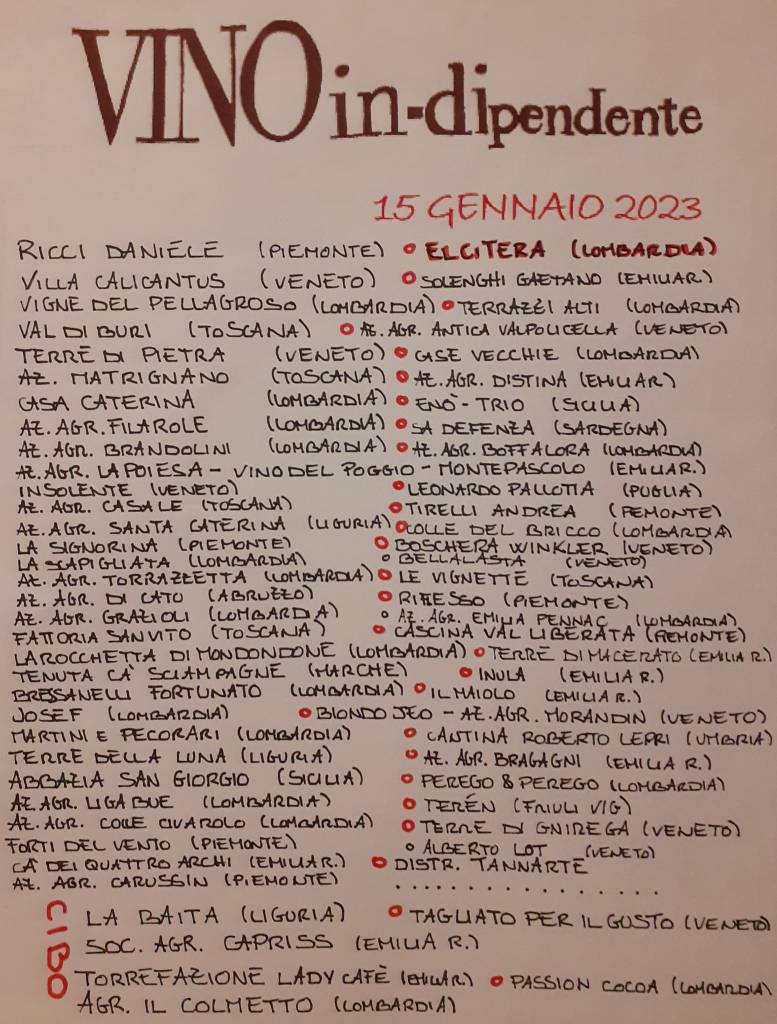 VINO in-dipendente
15 GENNAIO 2023
RICCI DANIELE (PIEMONTE) ELCITERA (LOMBARDIA)
VILLA CALICANTUS (VENETO) SOLENGHI GAETANO (EMILIA R.)
VIGNE DEL PELLAGROSO (LOMBARDIA) TERRAZZI ALTI (LOMBARDIA)
VAL DI BURI (TOSCANA) AZ. AGR. ANTICA VALPOLICELLA (VENETO)
TERRE DI PIETRA (VENETO) CASE VECCHIE (LOMBARDIA)
AZ. MATRIGNANO (TOSCANA) AZ. AGR. DISTINA (EMILIA R.)
CASA CATERINA (LOMBARDIA) ENÒ-TRIO (SICILIA)
AZ. AGR. FILAROLE (LOMBARDIA) SA DEFENZA (SARDEGNA)
AZ. AGR. BRANDOLINI (LOMBARDIA) AZ. AGR. BOFFALORA (LOMBARDIA)
AZ. AGR. LA POIESA - VINO DEL POGGIO - MONTEPASCOLO (EMILIA R.)
INSOLENTE (VENETO) LEONARDO PALLOTTA (PUGLIA)
AZ. AGR. CASALE (TOSCANA) TIRELLI ANDREA (PIEMONTE)
AZ. AGR. SANTA CATERINA (LIGURIA) COLLE DEL BRICCO (LOMBARDIA)
LA SIGNORINA (PIEMONTE) BOSCHERA WINKLER (VENETO)
LA SCAPIGLIATA (LOMBARDIA) BELLALASTA (VENETO)
AZ. AGR. TORRAZZETTA (LOMBARDIA) LE VIGNETTE (TOSCANA)
AZ. AGR. DI CATO (ABRUZZO) RIFLESSO (PIEMONTE)
AZ. AGR. GRAZIOLI (LOMBARDIA) AZ. AGR. EMILIA PENNAC (LOMBARDIA)
FATTORIA SAN VITO (TOSCANA) CASCINA VAL LIBERATA (PIEMONTE)
LA ROCCHETTA DI MONDONDONE (LOMBARDIA) TERRE DI MACERATO (EMILIA R.)
TENUTA CA' SCIAMPAGNE (MARCHE) INULA (EMILIA R.)
BRESSANELLI FORTUNATO (LOMBARDIA) IL MAIOLO (EMILIA R.)
JOSEF (LOMBARDIA) BIONDO JEO - AZ. AGR. MORANDIN (VENETO)
MARTINI E PECORARI (LOMBARDIA) CANTINA ROBERTO LEPRI (UMBRIA)
TERRE DELLA LUNA (LIGURIA) AZ. AGR. BRAGAGNI (EMILIA R.)
ABBAZIA SAN GIORGIO (SICILIA) PEREGO & PEREGO (LOMBARDIA)
AZ. AGR. LIGABUE (LOMBARDIA) TERÉN (FRIULI VIG)
AZ. AGR. COLLE CIVAROLO (LOMBARDIA) TERRE DI GNIREGA (VENETO)
FORTI DEL VENTO (PIEMONTE) ALBERTO LOT (VENETO)
CA' DEI QUATTRO ARCHI (EMILIA R.) DISTR. TANNARTE
AZ. AGR. CARUSSIN (PIEMONTE) . . . . . . . . . . . . . . . .
CIBO
LA BAITA (LIGURIA) TAGLIATO PER IL GUSTO (VENETO)
SOC. AGR. CAPRISS (EMILIA R.)
TORREFAZIONE LADY CAFÈ (EMILIA R.) PASSION COCOA (LOMBARDIA)
AGR. IL COLMETTO (LOMBARDIA)